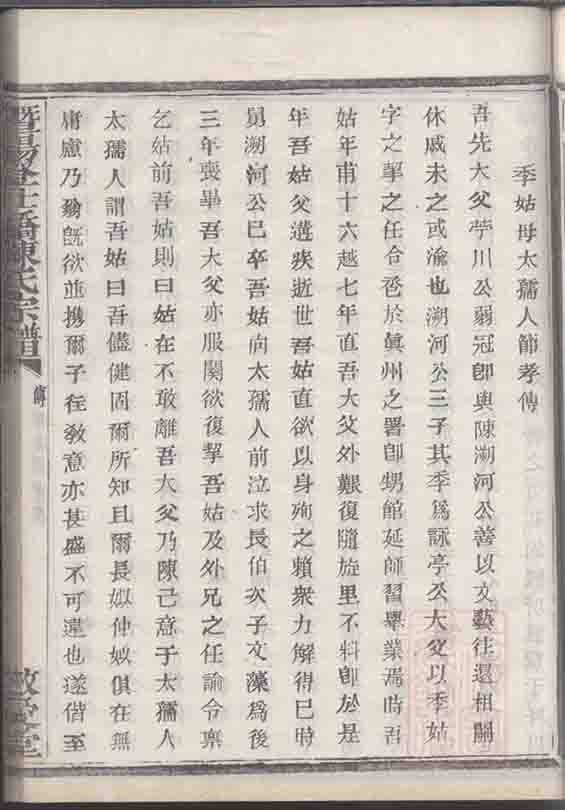 季姑母太孺人節孝傳
吾先大父苧川公弱冠卽與陳溯河公善以文藝往還相關
休戚未之或渝也溯河公三子其季爲詠亭公大父以季姑
字之挈之任合巹於眞州之署卽甥館延師習舉業焉時吾
姑年甫十六越七年直吾大父外艱復隨旋里不料卽於是
年吾姑父遘疾逝世吾姑直欲以身殉之賴衆力解得已時
舅溯河公已卒吾姑向太孺人前泣求長伯次子文藻爲後
三年喪畢吾大父亦服闋欲復挈吾姑及外兄之任諭令禀
乞姑前吾姑則曰姑在不敢離吾大父乃陳己意于太孺人
太孺人謂吾姑曰吾儘健固爾所知且爾長姒仲姒俱在無
庸慮乃翁旣欲並携爾子在敎意亦甚盛不可違也遂偕至
暨陽 陳氏宗譜
傳